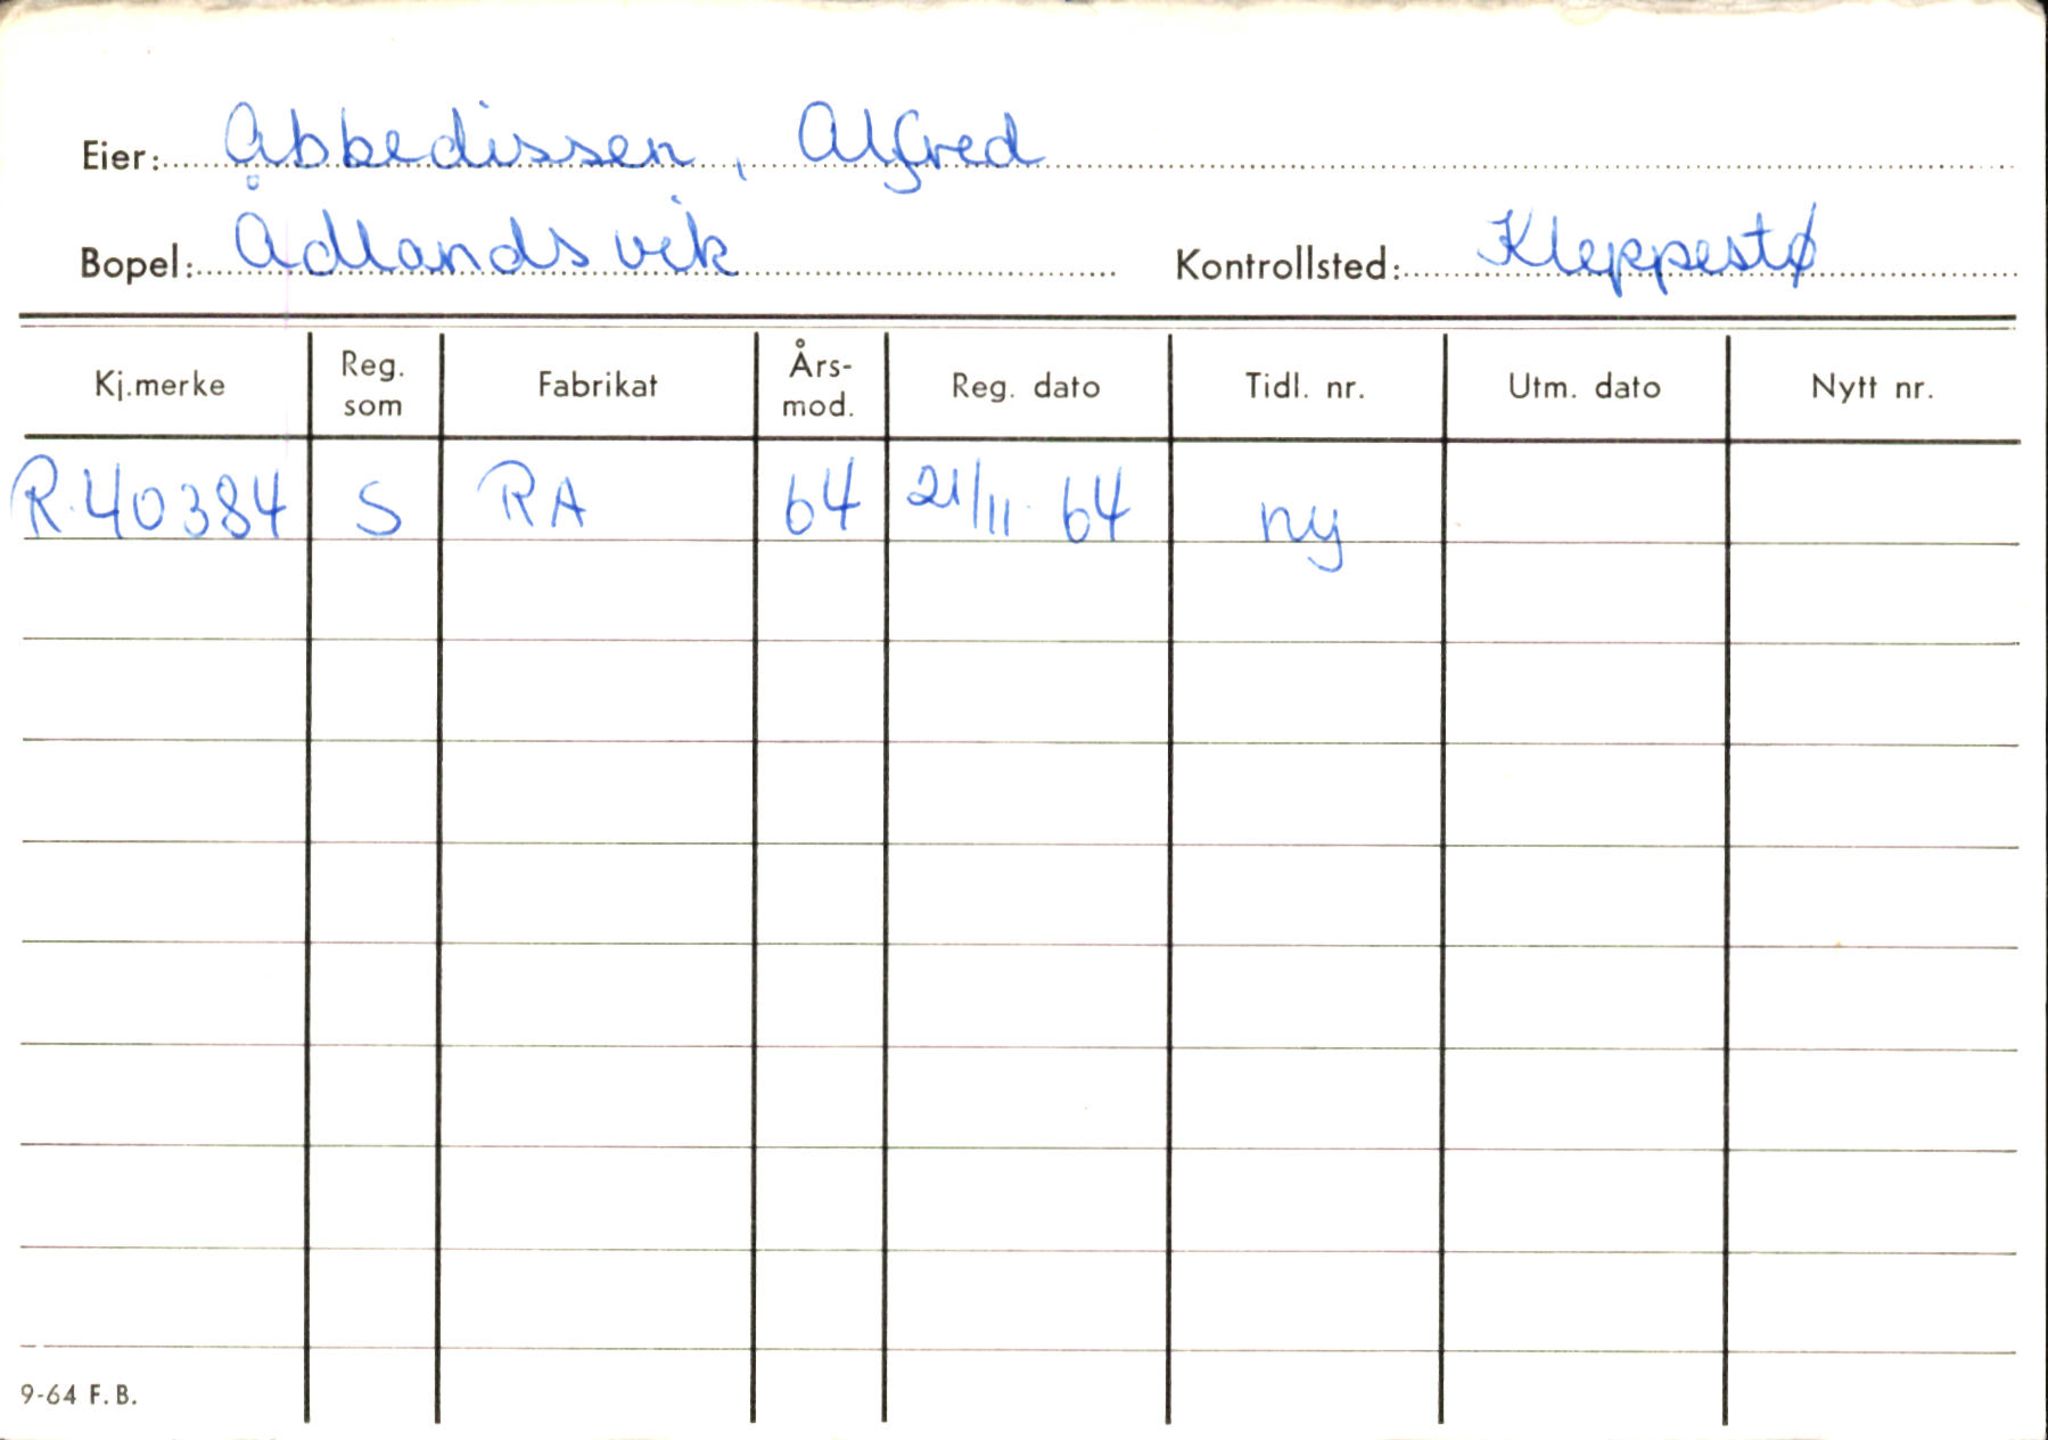 Eier: Abbedissen, Alfred
Bopel: Ådlandsvik Kontrollsted: Kleppestø
Kj.merke Reg. som Fabrikat Års-mod. Reg. dato Tidl. nr. Utm. dato Nytt nr.
R.40384 S RA 64 21/11. 64 ny
9-64 F.B.